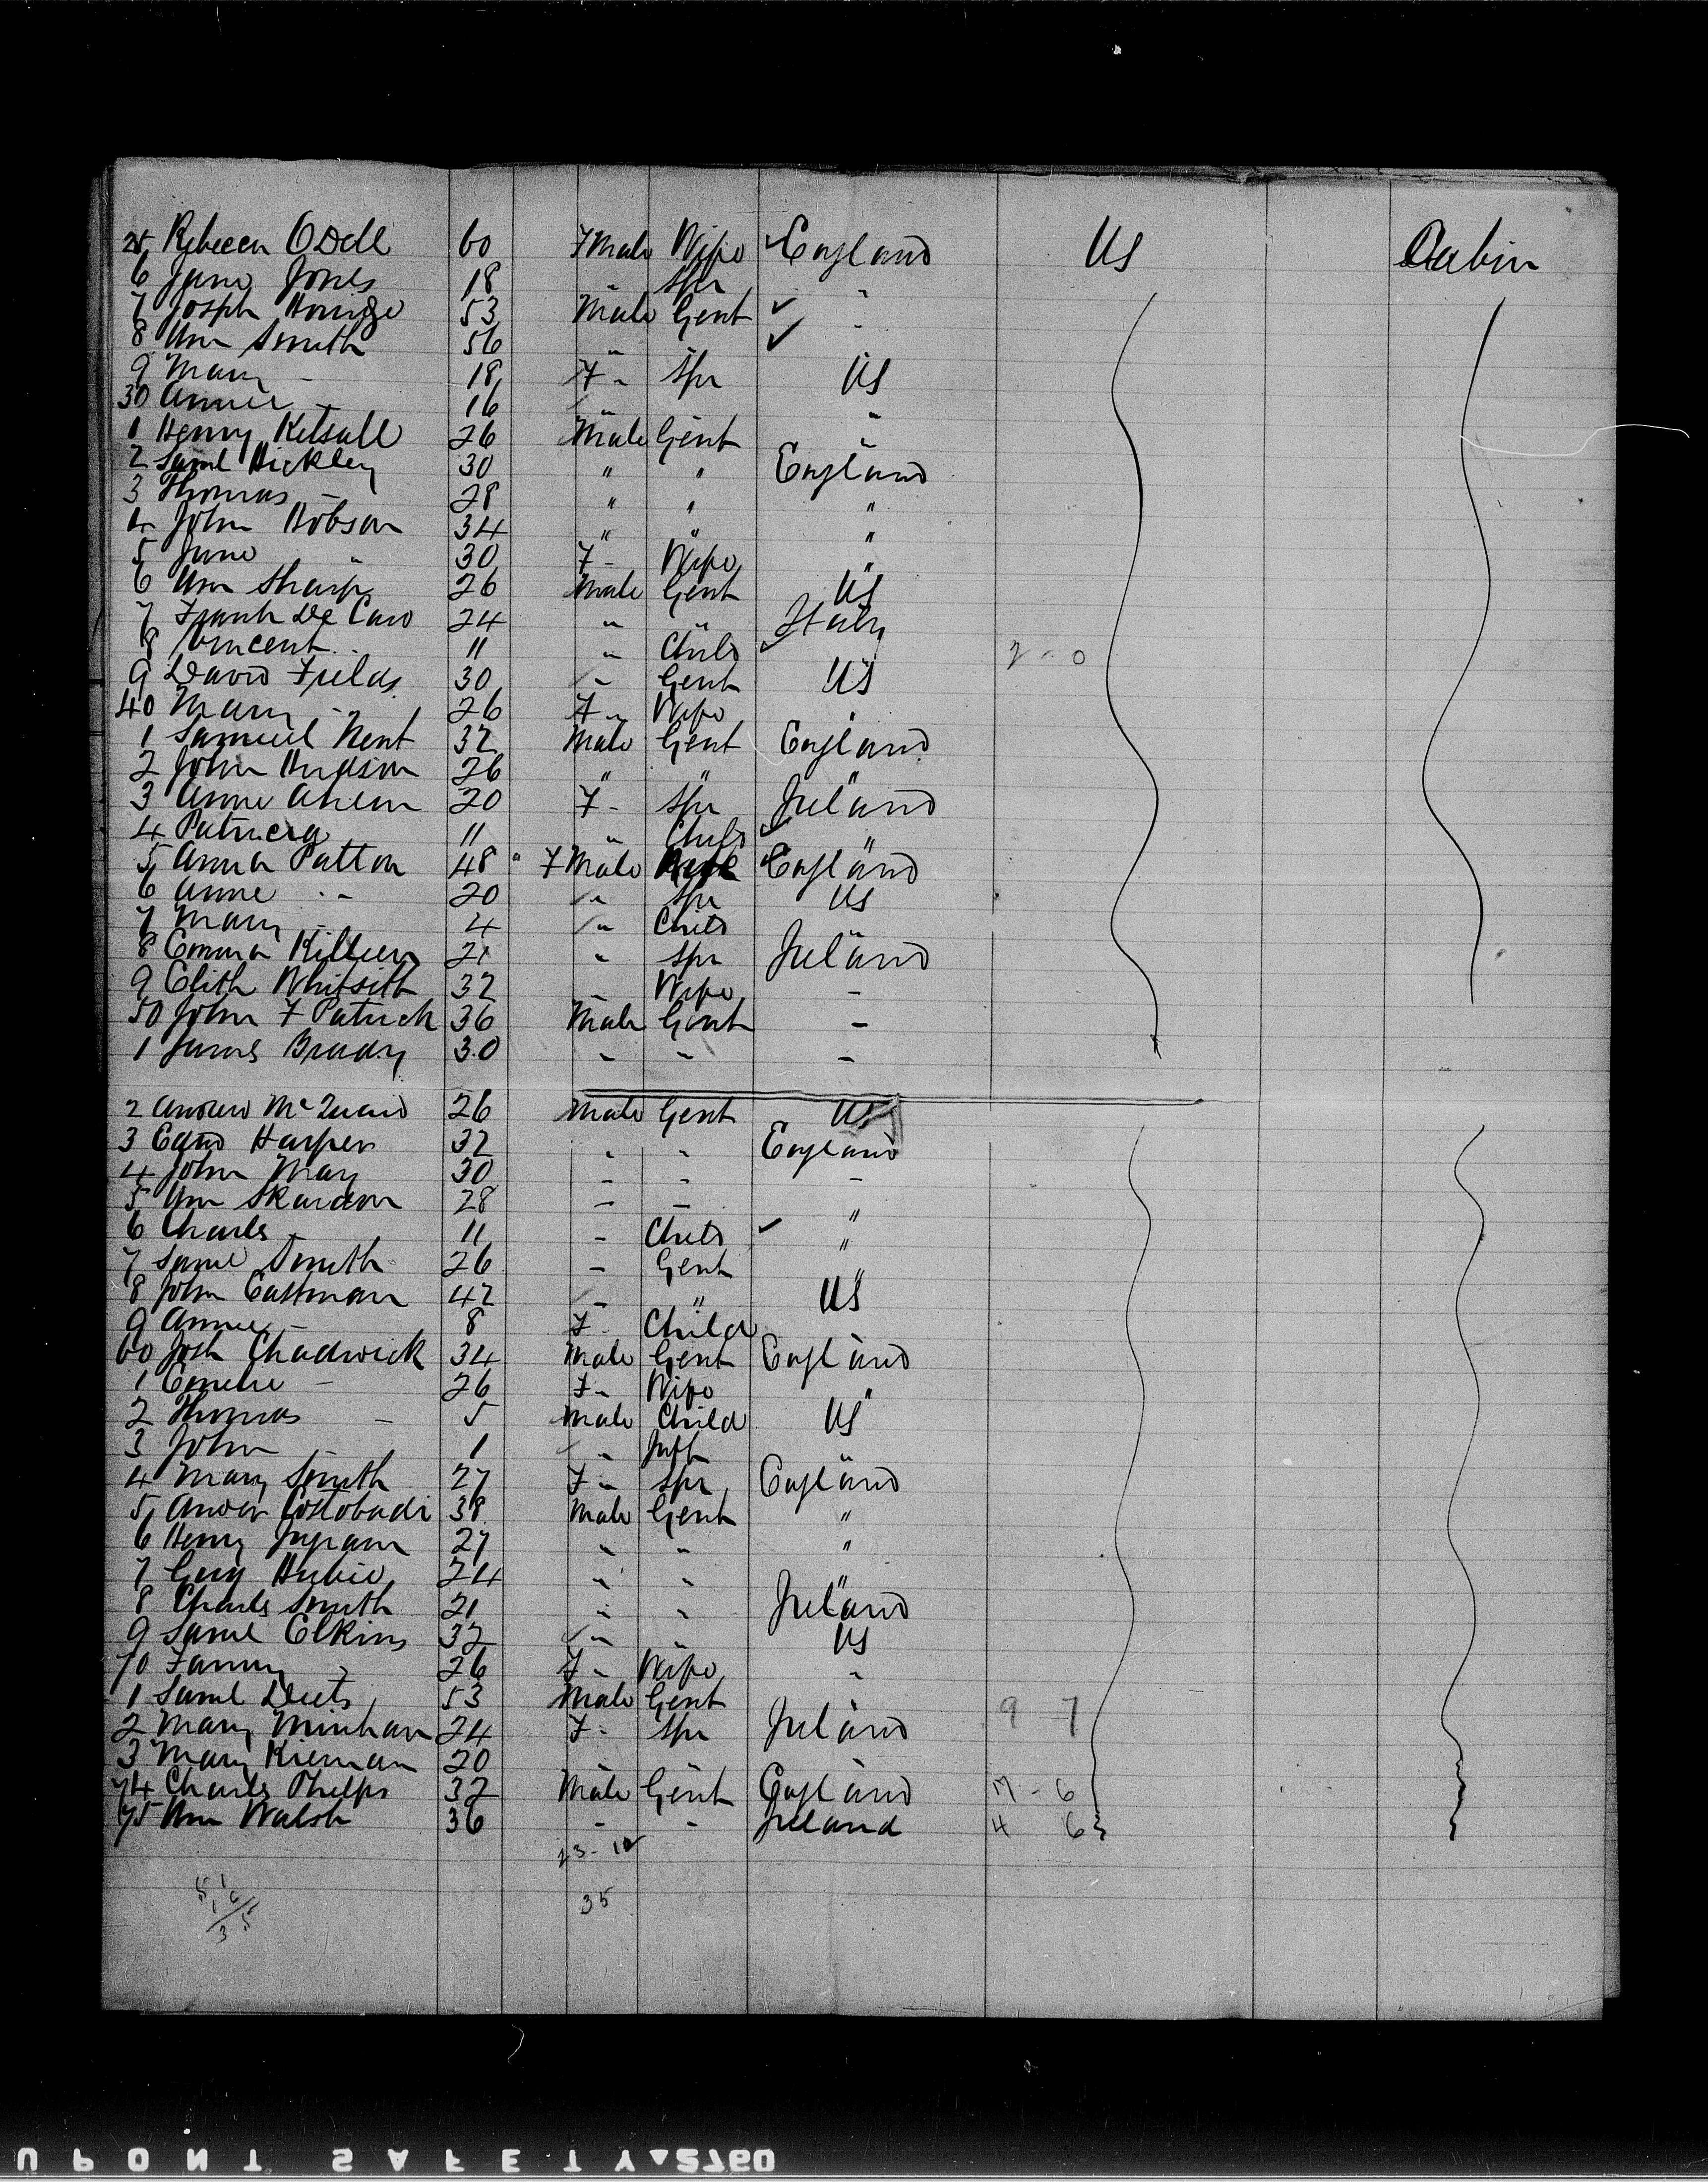 25 Rebecca Odell 60 F Male Wife ✓ England US Cabin
6 Jane Jones 18 " Spr "
7 Joseph 53 Male Gent ✓ "
8 Wm Smith 56 " " ✓
9 Mary - 18 F " Spr US
30 Annie - 16 " "
1 Henry Kelsall 26 Male Gent "
2 Saml Hickley 30 " " England
3 Thomas - 28 " " "
4 John Hobson 34 " " "
5 Jane " 30 F - Wife "
6 Wm Sharp 26 Male Gent US
7 Frank De Caro 24 " " Italy
8 Vincent " 11 " Child ✓ 2 - 0
9 David Fields 30 " Gent US
40 Mary - 26 F " Wife "
1 Samuel Kent 32 Male Gent England
2 John Hudson 26 " " "
3 Anne Ahern 20 F - Spr Ireland
4 Patricia 11 " Child ✓ "
5 Anna Patton 48 " F Male ✓ England
6 Anne " 20 " Spr US
7 Mary - 4 " Child "
8 Emma Killeen 21 " Spr Ireland
9 Edith Whitsitt 32 - Wife -
50 John F Patrick 36 Male Gent -
1 James Brady 30 - - -
2 Andrew McQuaid 26 Male Gent US
3 Edwd Harper 32 - - England
4 John May 30 - - -
5 Wm Skardon 28 - - "
6 Charles - 11 - Child ✓ "
7 Saml Smith 26 - Gent "
8 John Eastman 42 - " US
9 Annie - 8 F - Child "
60 Josh Chadwick 34 Male Gent England
1 Emelie - 26 F - Wife "
2 Thomas - 5 Male Child US
3 John - 1 " Inft "
4 Mary Smith 27 F " Spr England
5 Costobadi 38 Male Gent "
6 Henry Ingram 27 " " "
7 Guy 24 " " "
8 Charles Smith 21 " " Ireland
9 Saml Elkins 32 " " US
70 Fanny " 26 F " Wife "
1 Saml Deets 53 Male Gent " 9 - 7
2 Mary Minihan 24 F - Spr Ireland
3 Mary Kiernan 20 - - -
74 Charles Phelps 32 Male Gent England 7 - 6
75 Wm Walsh 36 - - Ireland 4 6
23 - 12
35
51
16
35
DUPONT SAFETY 2760